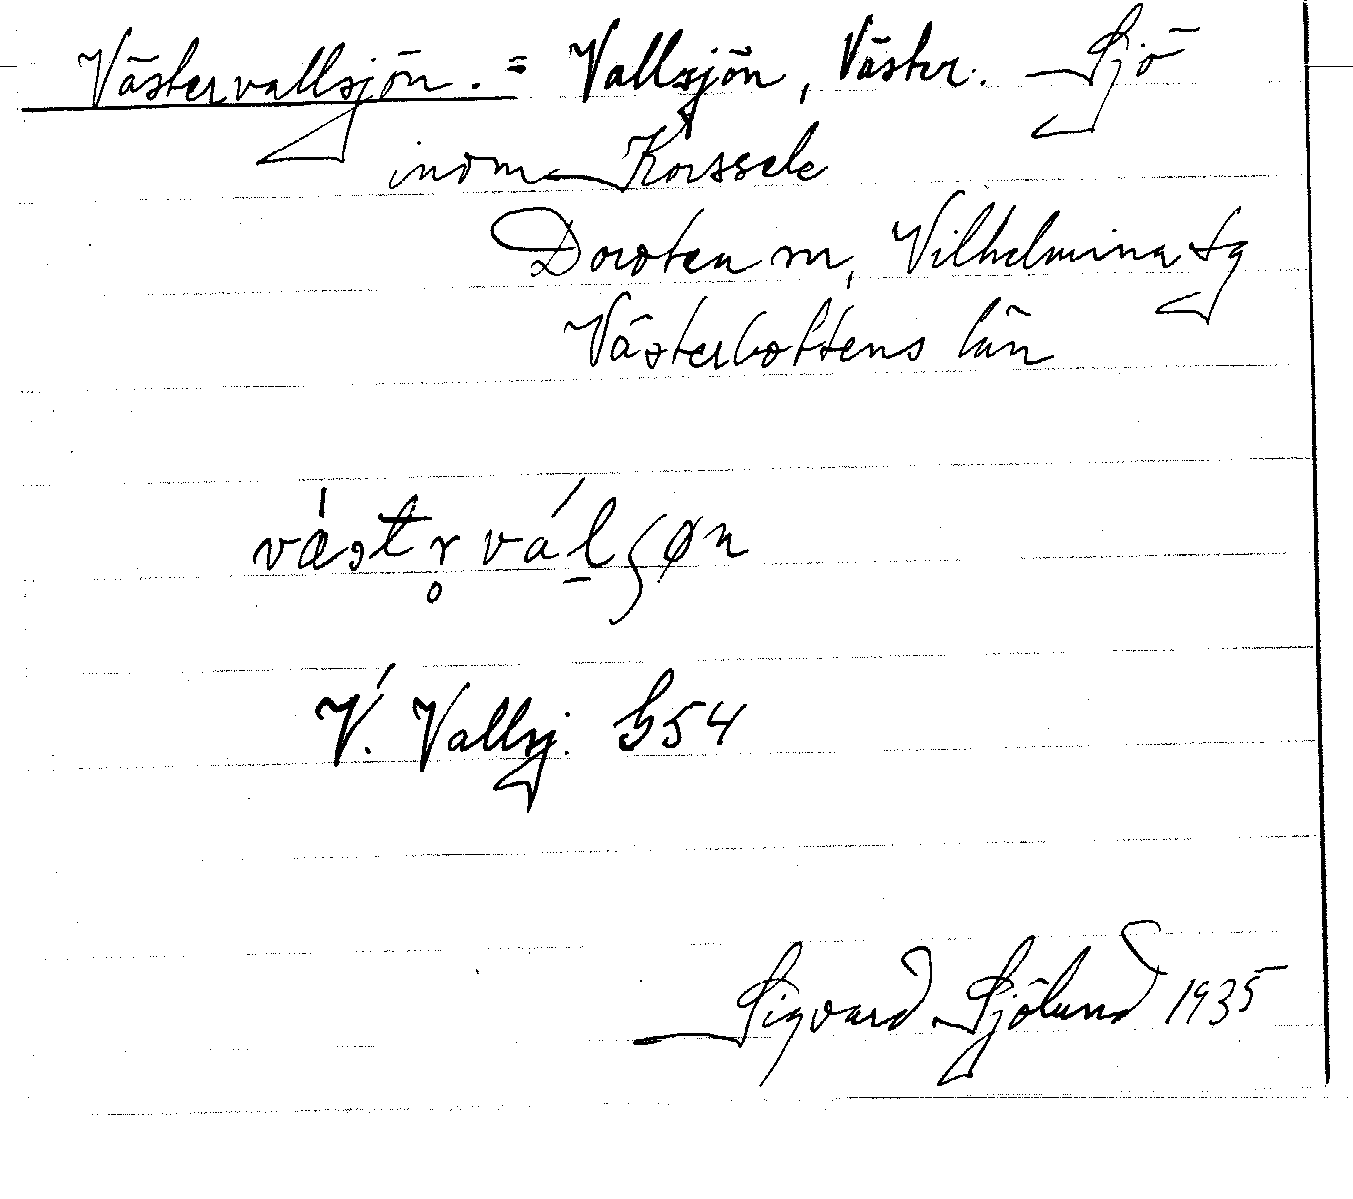 Västervallsjön. = Vallsjön, Väster. Sjö
inom Korssele
Dorotea m, Vilhelmina tg
Västerbottens län
vä́str̥ vál̠ʃøn
V. Vallsj. G54
Sigvard Sjölund 1935